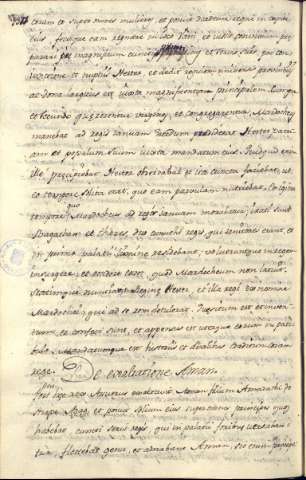 eorum ex super omnes mulieres, et posuit diadema regni in capite
eius, fecitque eam regnare in loco Vasti, et iussit convivium pre
parari per magnificum cunctis et servis suis, pro con
iunctione et nuptiis Hester, et dedit requiem universis provinciis,
ac dona largitus est iuxta magnificentiam principalem. Cumque
et secundo quererentur virgines, et congregarentur, Mardocheus
manebat ad regis ianuam, necdum prodiderat Hester patri
am et populum suum iuxta mandatum eius. Quidquid enim
ille precipiebat Hester observabat, et ita cuncta faciebat, ut
eo tempore solita erat, quo eam parvulam nutriebat. Eo igitur
tempore quo Mardocheus ad regis ianuam morabatur, irati sunt
Bagathan et Thares, duo eunuchi regis, qui ianitores erant, et
in primo palatii limine residebant, volueruntque in regem
insurgere, et occidere eum, quod Mardocheum non latuit.
Statimque nuntiavit Regine Hester, et illa regi ex nomine
Mardochei, qui ad se rem detulerat. Quesitum est et inven
tum, et confessi sunt, et appensus est uterque eorum in pati
bulo. Mandatumque est historiis et annalibus traditum coram
rege.
De exaltatione Aman
Post hec rex Assuerus exaltavit Aman filium Amadathi de
stirpe Agag, et posuit solium eius super omnes principes quos
habebat, cuncti servi regis, qui in palatii foribus versaban
tur flectebant genu, et adorabant Aman, sic enim preceperat